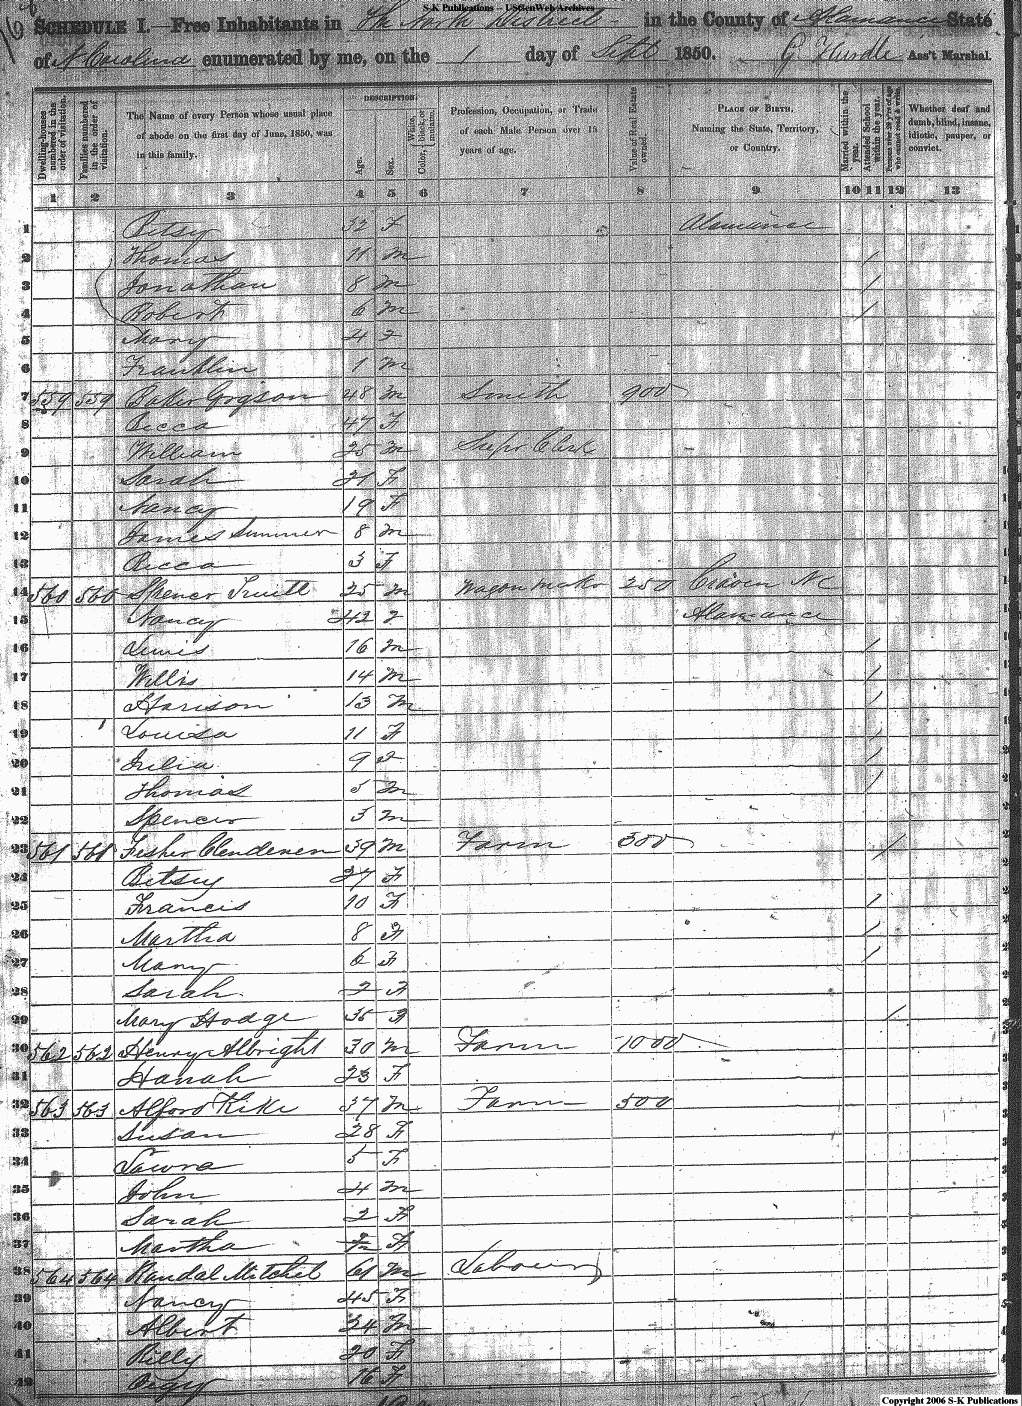 S-K Publications – USGenWeb Archives
SCHEDULE I.—Free Inhabitants in The North District in the County of Alamance State
of N Carolina enumerated by me, on the 1 day of Sept 1850. G Hurdle Ass't Marshal.
Dwelling-houses numbered in the order of visitation.
Families numbered in the order of visitation.
The Name of every Person whose usual place of abode on the first day of June, 1850, was in this family.
DESCRIPTION.
Age.
Sex.
Color, White, black, or mulatto.
Profession, Occupation, or Trade of each Male Person over 15 years of age.
Value of Real Estate owned.
PLACE OF BIRTH. Naming the State, Territory, or Country.
Married within the year.
Attended School within the year.
Persons over 20 y'rs of age who cannot read & write.
Whether deaf and dumb, blind, insane, idiotic, pauper, or convict.
1 2 3 4 5 6 7 8 9 10 11 12 13
1 Betsy 32 F Alamance
2 Thomas 11 M /
3 Jonathan 8 M /
4 Robert 6 M /
5 Mary 4 F
6 Franklin 1 M
7 559 559 Baker 48 M Smith 900
8 Becca 47 F
9 William 25 M Clerk
10 Sarah 21 F
11 Nancy 19 F
12 James Summer 8 M
13 Becca 3 F
14 560 560 Spencer Truitt M Wagon maker 250 Craven NC
15 Nancy 42 F Alamance
16 Lewis 16 M /
17 Willis 14 M /
18 Harison 13 M /
19 Louisa 11 F /
20 Julia 9 F /
21 Thomas 5 M /
22 Spencer 3 M
23 561 561 Fisher Clendenen 39 M Farm 300 /
24 Betsy 27 F
25 Francis 10 F /
26 Martha 8 F /
27 Mary 6 F /
28 Sarah 2 F
29 Mary Hodge 35 F /
30 562 562 Henry Albright 30 M Farm 1000
31 Hanah 23 F
32 563 563 Alford 37 M Farm 500
33 Susan 28 F
34 Lawra 5 F
35 John 4 M
36 Sarah 2 F
37 Martha F
38 564 564 Randal Mitchel 61 M Labour
39 Nancy 45 F
40 Albert 24 M
41 20 F
42 16 F
Copyright 2006 S-K Publications